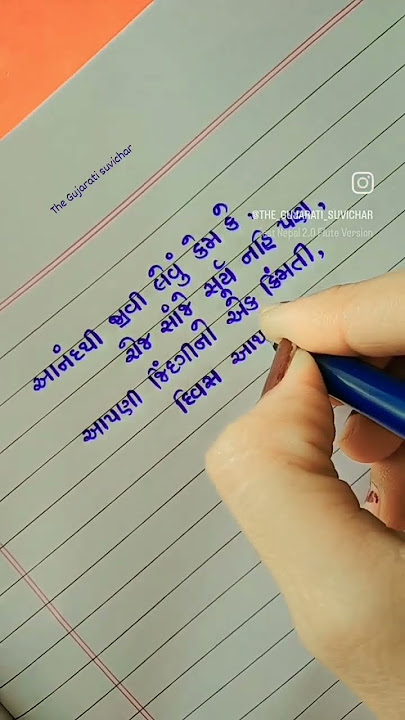 The Gujarati suvichar
@THE_GUJARATI_SUVICHAR
Nepal 2.0 Flute Version
આનંદથી જીવી લેવું કેમ કે,
રોજ સાંજે સૂર્ય નહિ પણ,
આપણી જિંદગીનો એક કિંમતી,
દિવસ આથ